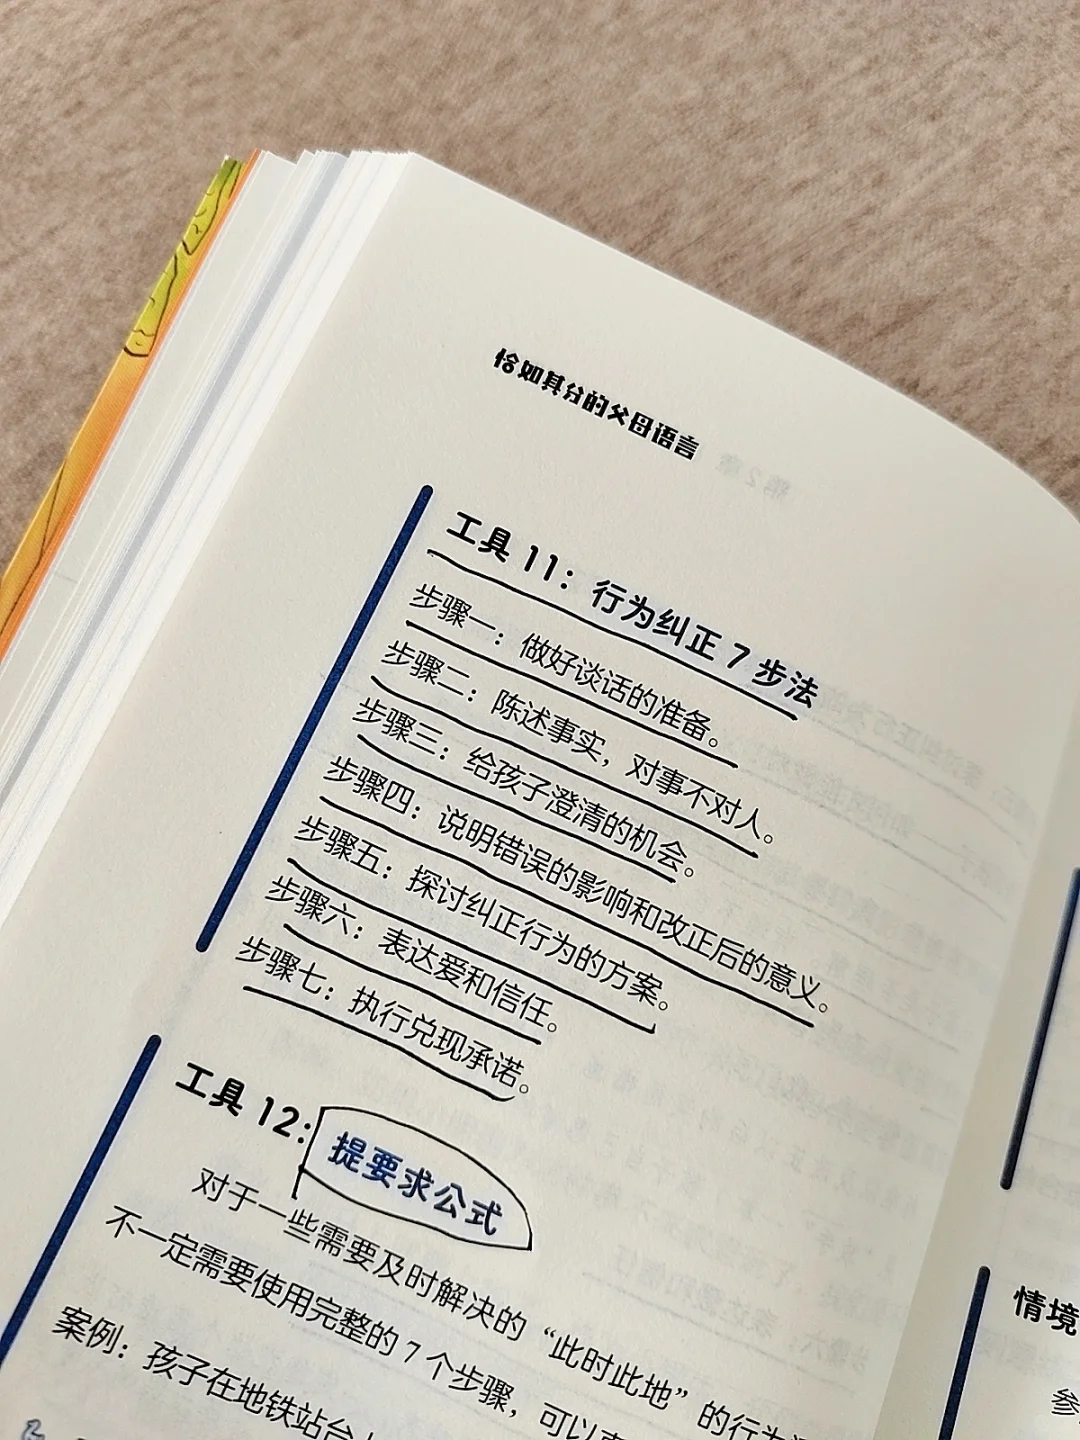 恰如其分的父母语言
第2章
工具 11：行为纠正 7 步法
步骤一：做好谈话的准备。
步骤二：陈述事实，对事不对人。
步骤三：给孩子澄清的机会。
步骤四：说明错误的影响和改正后的意义。
步骤五：探讨纠正行为的方案。
步骤六：表达爱和信任。
步骤七：执行兑现承诺。
工具 12：提要求公式
对于一些需要及时解决的“此时此地”的行为
不一定需要使用完整的 7 个步骤，可以
案例：孩子在地铁站台
情境
参